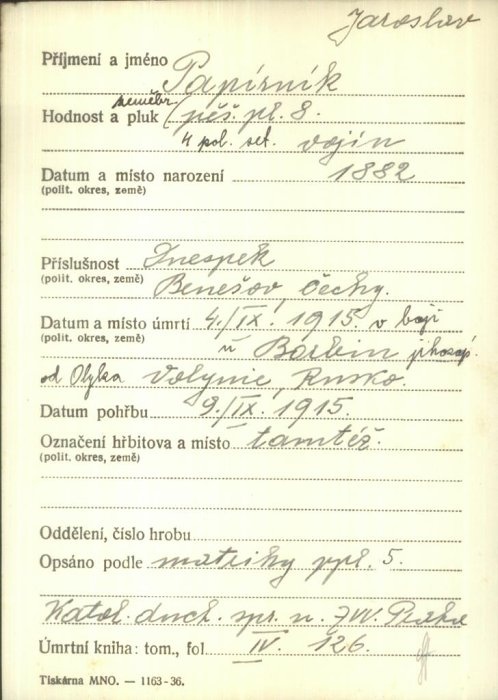 Jaroslav
Příjmení a jméno Papírník
zeměbr.
Hodnost a pluk pěš. pl. 8.
4 pol. set. vojín
Datum a místo narození 1882
(polit. okres, země)
Příslušnost Dnespek
(polit. okres, země) Benešov, Čechy.
Datum a místo úmrtí 4./IX. 1915. v boji
(polit. okres, země) u Borbin jihozáp.
od Olyka Volynie, Rusko.
Datum pohřbu 9./IX. 1915.
Označení hřbitova a místo tamtéž.
(polit. okres, země)
Oddělení, číslo hrobu
Opsáno podle matriky ppl. 5.
Katol. duch. spr. n. ZVV. Praha
Úmrtní kniha: tom., fol IV. 126.
Tiskárna MNO. — 1163-36.